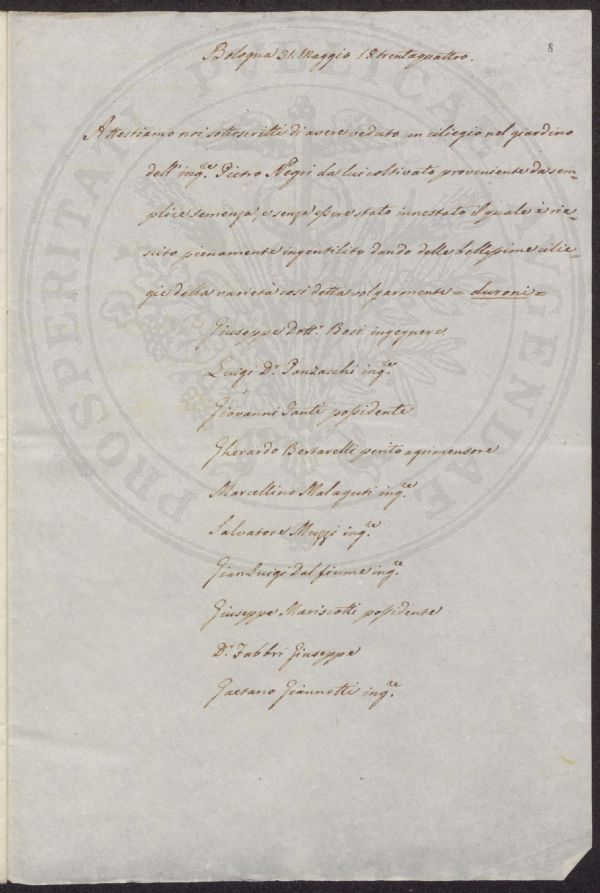 8
Bologna 31. Maggio 18trentaquattro.
Attestiamo noi sottoscritti di avere veduto un ciliegio nel giardino
dell'ingre. Pietro Negri da lui coltivato proveniente da sem=
plice semenza, e senza essere stato innestato il quale è rie=
scito pienamente ingentilito dando delle bellissime cilie=
gie della varietà così detta volgarmente = duroni =
Giuseppe Dottr. Bosi ingegnere
Luigi Dr. Panzacchi ingre.
Giovanni Santi possidente
Gherardo Bersarelli perito agrimensore
Marcellino Malaguti ingre.
Salvatore Muzzi ingre.
Gian Luigi Dal fiume ingre.
Giuseppe Mariscotti possidente
Dr. Fabbri Giuseppe
Gaetano Giannotti ingre.
PROSPERITATI PUBLICAE AUGENDAE